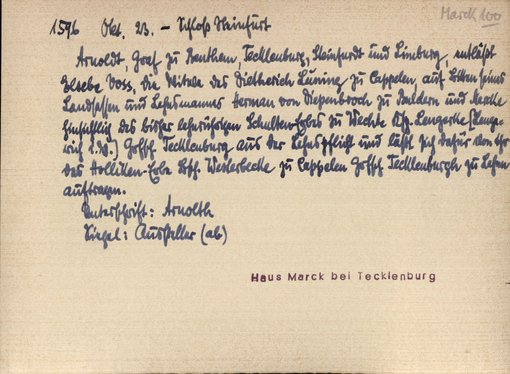 Marck 100
1596 Okt. 23. – Schloß Steinfurt
Arnoldt, Graf zu Benthem, Tecklenburg, Steinfurdt und Limburg, entläßt
Elsebe Voss, die Witwe des Dietherich Lüning zu Cappelen, auf Bitten seines
Landsassen und Lehnsmannes Herman von Diepenbroch zu Buldern und Marke
hinsichtlich des bisher lehnrührigen Schulten-Erbes zu Wechte Ksp. Lengerke (Lenge-
rich i.W.) Grfsch. Tecklenburg aus der Lehnspflicht und läßt sich dafür von ihr
das Hollken-Erbe Ksp. Westerbecke zu Cappelen Grfsch. Tecklenburgh zu Lehen
auftragen.
Unterschrift: Arnolth
Siegel: Aussteller (ab)
Haus Marck bei Tecklenburg